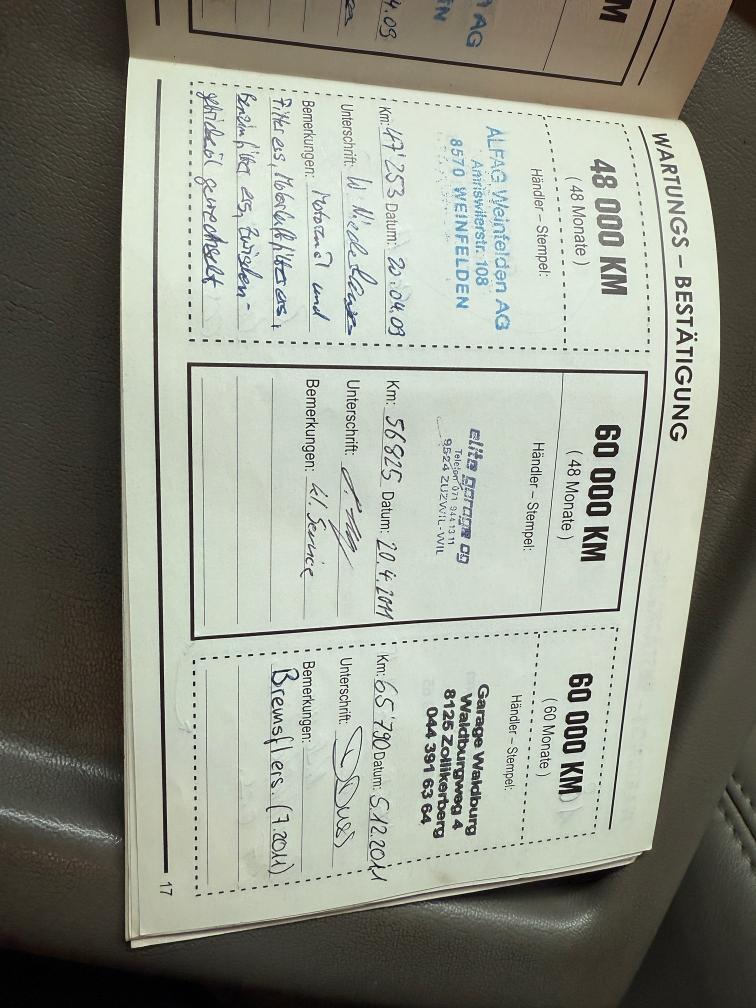 WARTUNGS – BESTÄTIGUNG
48 000 KM
( 48 Monate )
Händler – Stempel:
ALFAG Weinfelden AG
Amriswilerstr. 108
8570 WEINFELDEN
Km: 47'253 Datum: 20.04.09
Unterschrift: W.
Bemerkungen: Motorenöl und
Filter ers, Motorluftfilter ers,
Benzinfilter ers, Zwischen-
getriebeöl gewechselt
60 000 KM
( 48 Monate )
Händler – Stempel:
elite garage ag
Telefon 071 944 13 11
9524 ZUZWIL-WIL
Km: 56825 Datum: 20.4.2011
Unterschrift:
Bemerkungen: kl. Service
60 000 KM
( 60 Monate )
Händler – Stempel:
Garage Waldburg
Waldburgweg 4
8125 Zollikerberg
044 391 63 64
Km: 65'790 Datum: 5.12.2011
Unterschrift:
Bemerkungen:
Bremsfl ers. (7.2011)
17
M
AG
EN
4.09